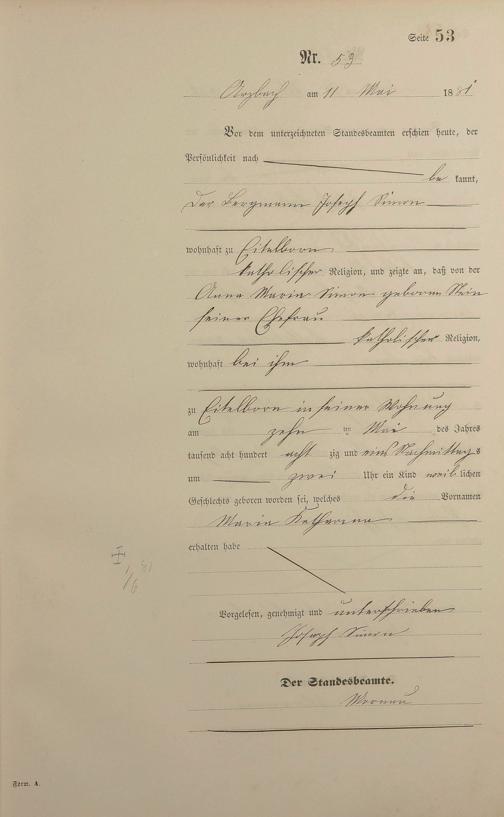 Seite 53
Nr. 53
Arzbach am 11 Mai 1881
Vor dem unterzeichneten Standesbeamten erschien heute, der
Persönlichkeit nach
be kannt,
der Bergmann Joseph Simon
wohnhaft zu Eitelborn
katholischer Religion, und zeigte an, daß von der
Anna Maria Simon geborene Stein
seiner Ehefrau
katholischer Religion,
wohnhaft bei ihm
zu Eitelborn in seiner Wohnung
am zehn ten Mai des Jahres
tausend acht hundert acht zig und eins Nachmittags
um zwei Uhr ein Kind weib lichen
Geschlechts geboren worden sei, welches die Vornamen
Maria Katharina
erhalten habe
1/6 81
Vorgelesen, genehmigt und unterschrieben
Joseph Simon
Der Standesbeamte.
Form. A.